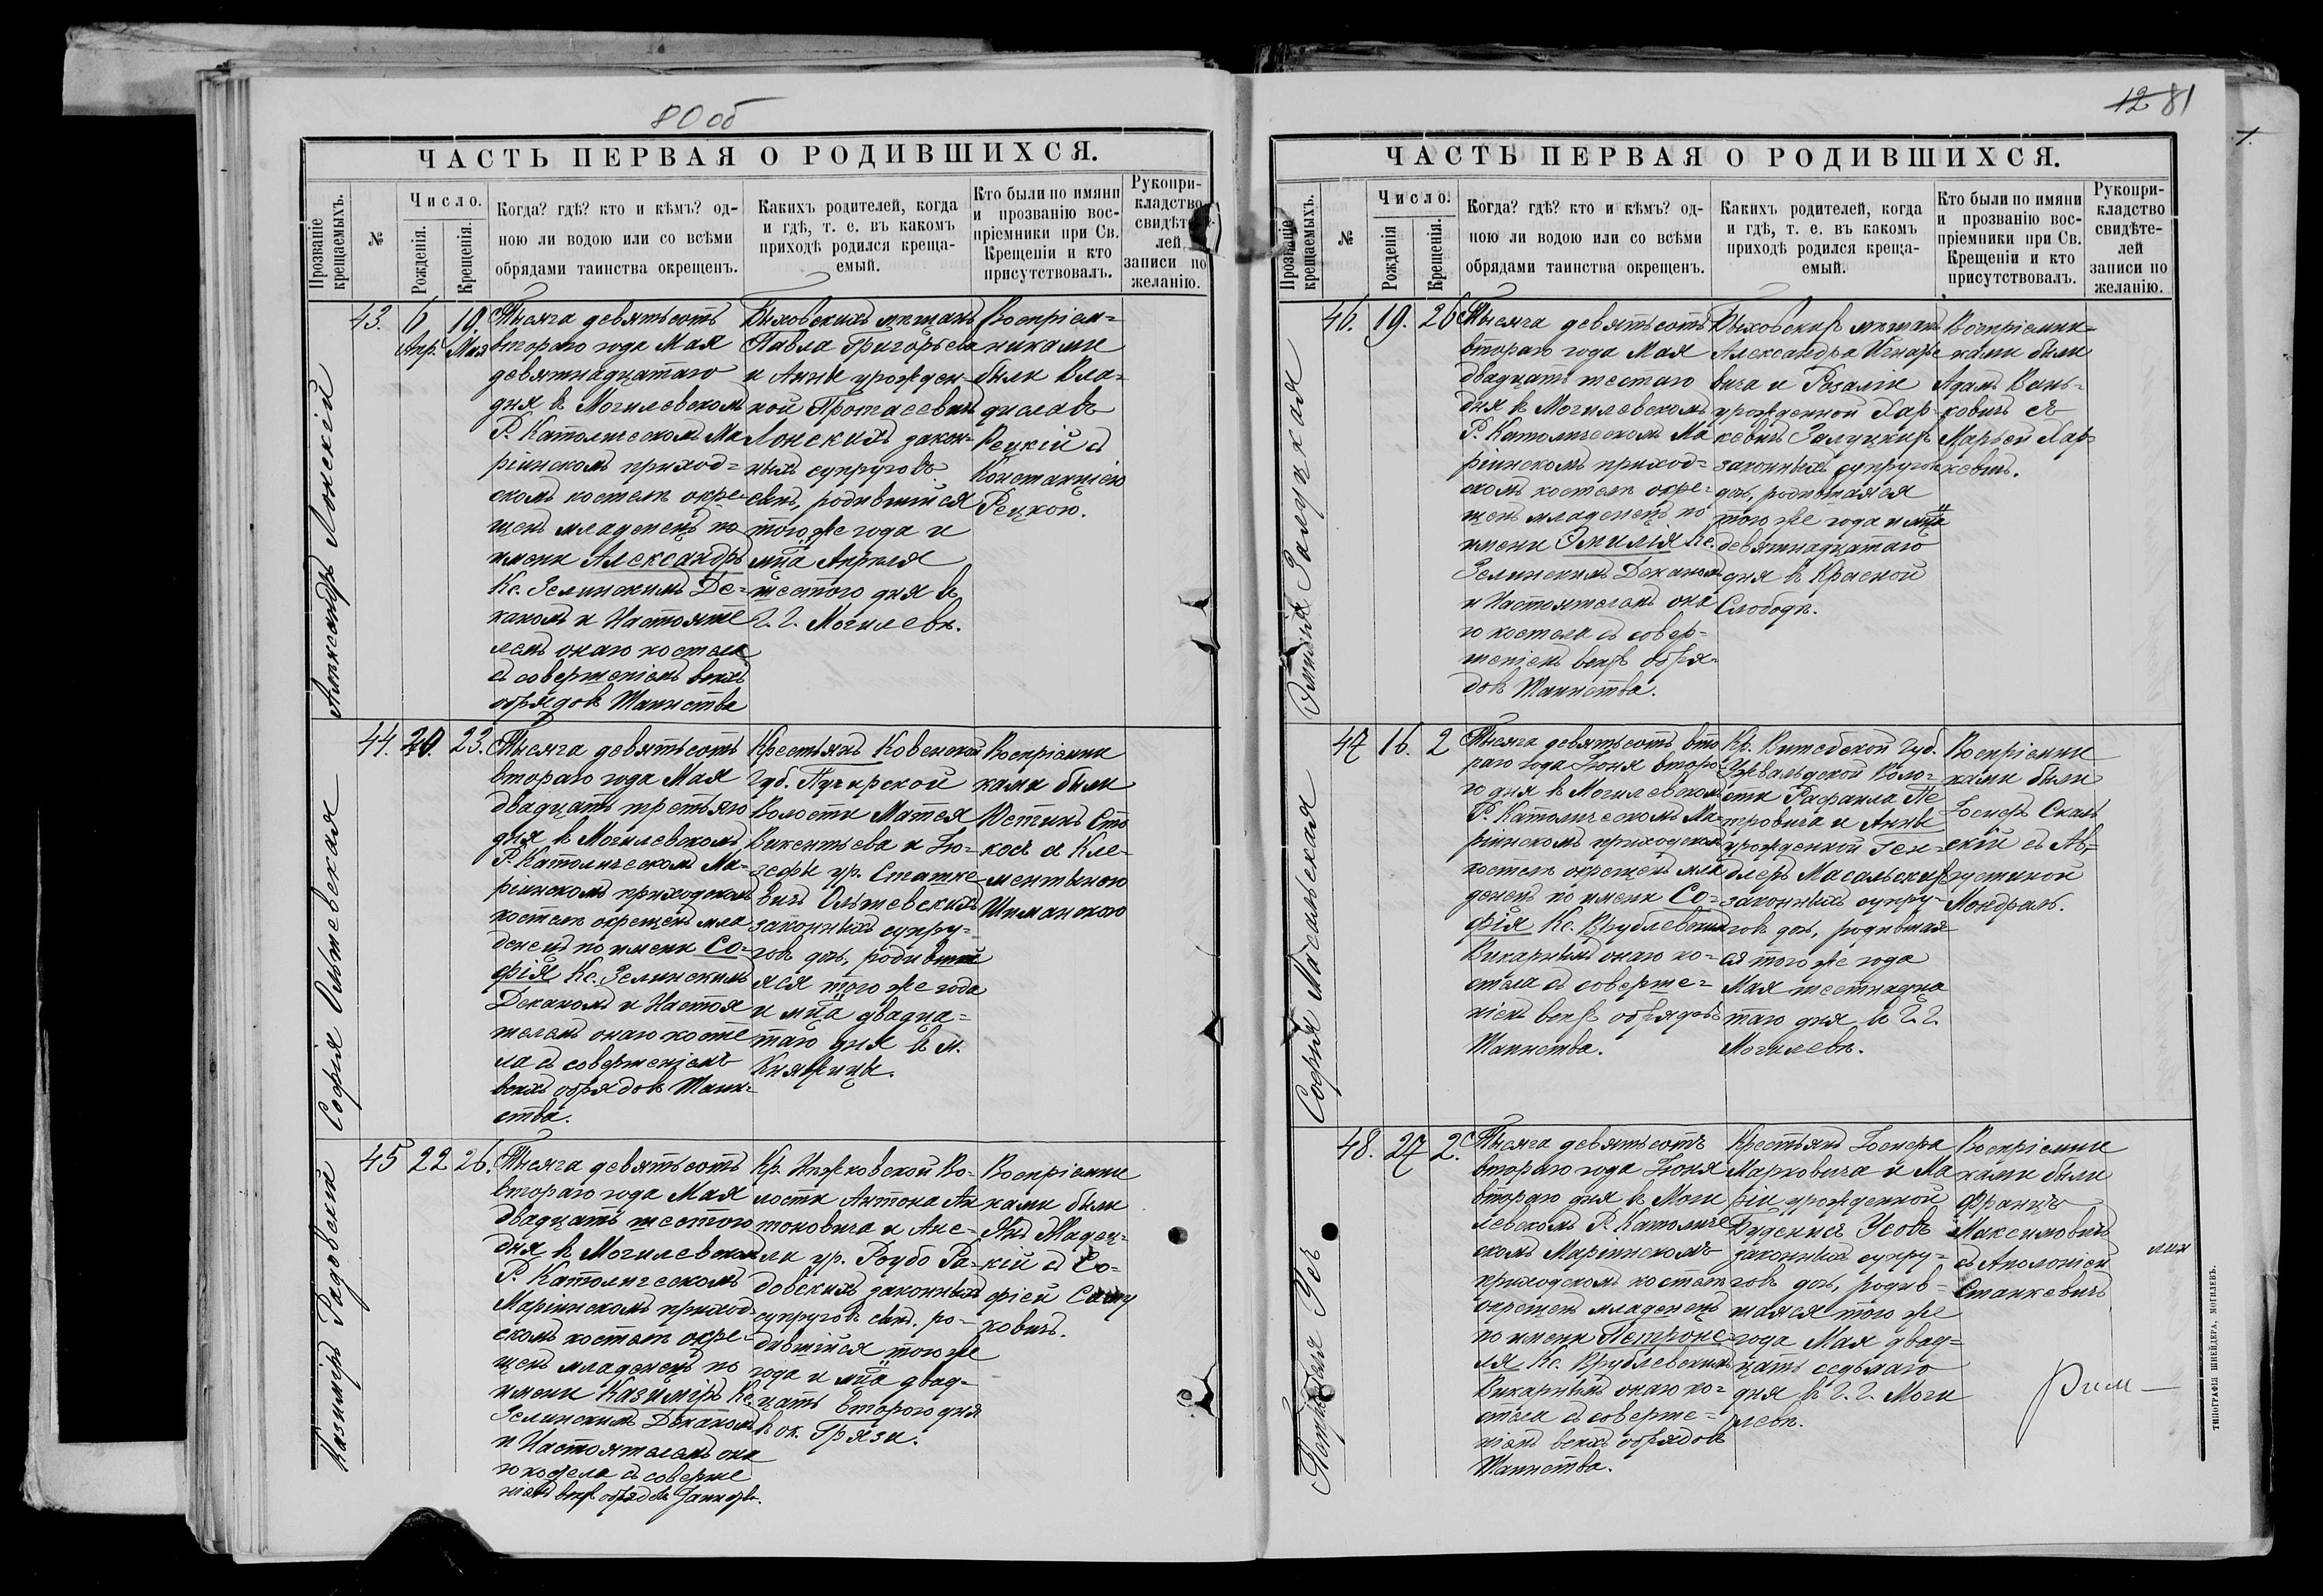 80 об
ЧАСТЬ ПЕРВАЯ О РОДИВШИХСЯ.
Прозваніе крещаемыхъ.
№
Число.
Рожденія.
Крещенія.
Когда? гдѣ? кто и кѣмъ? од-
ною ли водою или со всѣми
обрядами таинства окрещенъ.
Какихъ родителей, когда
и гдѣ, т. е. въ какомъ
приходѣ родился креща-
емый.
Кто были по имяни
и прозванію вос-
пріемники при Св.
Крещеніи и кто
присутствовалъ.
Рукопри-
кладство
свидѣте-
лей
записи по
желанію.
Александръ Лонскій
43.
6 Апр.
19. Мая
Тысяча девятьсотъ
второго года Мая
девятнадцатаго
дня въ Могилевскомъ
Р. Католическомъ Ма
ріинскомъ приход=
скомъ костелѣ окре-
щенъ младенецъ по
имени Александръ
Кс. Зелинскимъ Де-
каномъ и Настояте
лемъ онаго костела
съ совершеніемъ всѣхъ
обрядовъ Таинства
Быховскихъ мѣщанъ
Павла Григорьева
и Анны урожден-
ной Протасевичъ
Лонскихъ закон-
ныхъ супруговъ
сынъ, родившійся
того же года и
мца Апрѣля
шестого дня въ
Г. Г. Могилевѣ.
Воспріем=
никами
были Вла-
диславъ
Рецкій съ
Константіею
Рецкою.
Софія Ольшевская
44.
20.
23.
Тысяча девятьсотъ
второго года Мая
двадцать третьяго
дня въ Могилевскомъ
Р. Католическомъ Ма-
ріинскомъ приходскомъ
костелѣ окрещенъ мла
денецъ по имени Со-
фія Кс. Зелинскимъ
Деканомъ и Настоя
телемъ онаго косте
ла съ совершеніемъ
всѣхъ обрядовъ Таин=
ства.
Крестьянъ Ковенской
Губ.
Волости Матея
Викентьева и Іо-
зефы ур. Статке
вичъ Ольшевскихъ
законныхъ супру-
говъ дочь, родивша
яся того же года
и мца двадца=
таго дня въ м.
Княжицы.
Воспріемни
ками были
Устинъ Сто
косъ съ Кле-
ментыною
Шиманскою
Казимиръ Радовскій
45
22
26.
Тысяча девятьсотъ
второго года Мая
двадцать шестого
дня въ Могилевскомъ
Р. Католическомъ
Маріинскомъ приход-
скомъ костелѣ окре-
щенъ младенецъ по
имени Казимиръ Кс.
Зелинскимъ Деканомъ
и Настоятелемъ она
го костела съ соверше
ніемъ всѣхъ обрядовъ Таинства.
Кр. Во-
лости Антона Ан
тоновича и Ане-
ли ур. Роубо Ра-
довскихъ законныхъ
супруговъ сынъ, ро-
дившійся того же
года и мца двад-
цать второго дня
в ок. Грязи.
Воспріемни
ками были
Янъ Жадец-
кій съ Со-
фіей
ковичъ.
12 81
ЧАСТЬ ПЕРВАЯ О РОДИВШИХСЯ.
Прозваніе крещаемыхъ.
№
Число.
Рожденія
Крещенія.
Когда? гдѣ? кто и кѣмъ? од-
ною ли водою или со всѣми
обрядами таинства окрещенъ.
Какихъ родителей, когда
и гдѣ, т. е. въ какомъ
приходѣ родился креща-
емый.
Кто были по имяни
и прозванію вос-
пріемники при Св.
Крещеніи и кто
присутствовалъ.
Рукопри-
кладство
свидѣте-
лей
записи по
желанію.
Эмилія Залуцкая
46.
19.
26
Тысяча девятьсотъ
втораго года Мая
двадцать шестаго
дня въ Могилевскомъ
Р. Католическомъ Ма
ріинскомъ приход=
скомъ костелѣ окре-
щенъ младенецъ по
имени Эмилія Кс.
Зелинскимъ Деканомъ
и Настоятелемъ она
го костела съ совер-
шеніемъ всѣхъ обря-
довъ Таинства.
Быховскихъ мѣщанъ
Александра Игнать
вича и Розаліи
урожденной Хар-
кевичъ Залуцкихъ
законныхъ супруговъ
дочь, родившаяся
того же года и мца
девятнадцатаго
дня въ Красной
Слободѣ.
Воспріемни=
ками были
Адамъ Вань-
ковичъ съ
Марьей Хар-
кевичъ.
Софія Масальская
47
16.
2
Тысяча девятьсотъ вто
раго года Іюня второ
го дня въ Могилевскомъ
Р. Католическомъ Ма-
ріинскомъ приходскомъ
костелѣ окрещенъ мла
денецъ по имени Со-
фія Кс. Врублевскимъ
Викарнымъ онаго ко-
стела съ соверше=
ніемъ всѣхъ обрядовъ
Таинства.
Кр. Витебской Губ.
Ужвальдской Воло-
сти Рафаила Пе
тровича и Анны
урожденной Зен-
длеръ Масальскихъ
законныхъ супру-
говъ дочь, родившая
ся того же года
Мая шестнадца
таго дня въ Г. Г.
Могилевѣ.
Воспріемни
ками были
Іосифъ Скаль
скій съ Ав-
густиной
Мондраль.
Петронеля Усъ
48.
27
2.
Тысяча девятьсотъ
втораго года Іюня
втораго дня въ Моги
левскомъ Р. Католиче
скомъ Маріинскомъ
приходскомъ костелѣ
окрещенъ младенецъ
по имени Петроне-
ля Кс. Врублевскимъ
Викарнымъ онаго ко-
стела съ соверше-
ніемъ всѣхъ обрядовъ
Таинства.
Крестьянъ Іосифа
Марковича и Ма
ріи урожденной
Буденисъ Усовъ
законныхъ супру-
говъ дочь, родив-
шаяся того же
года Мая двад-
цать седьмаго
дня въ Г. Г. Моги
левѣ.
Воспріемни
ками были
Францъ
Максимовичъ
съ Аполоніей
Станкевичъ
Рим—
ТИПОГРАФІЯ ШНЕЙДЕРА, МОГИЛЕВЪ.